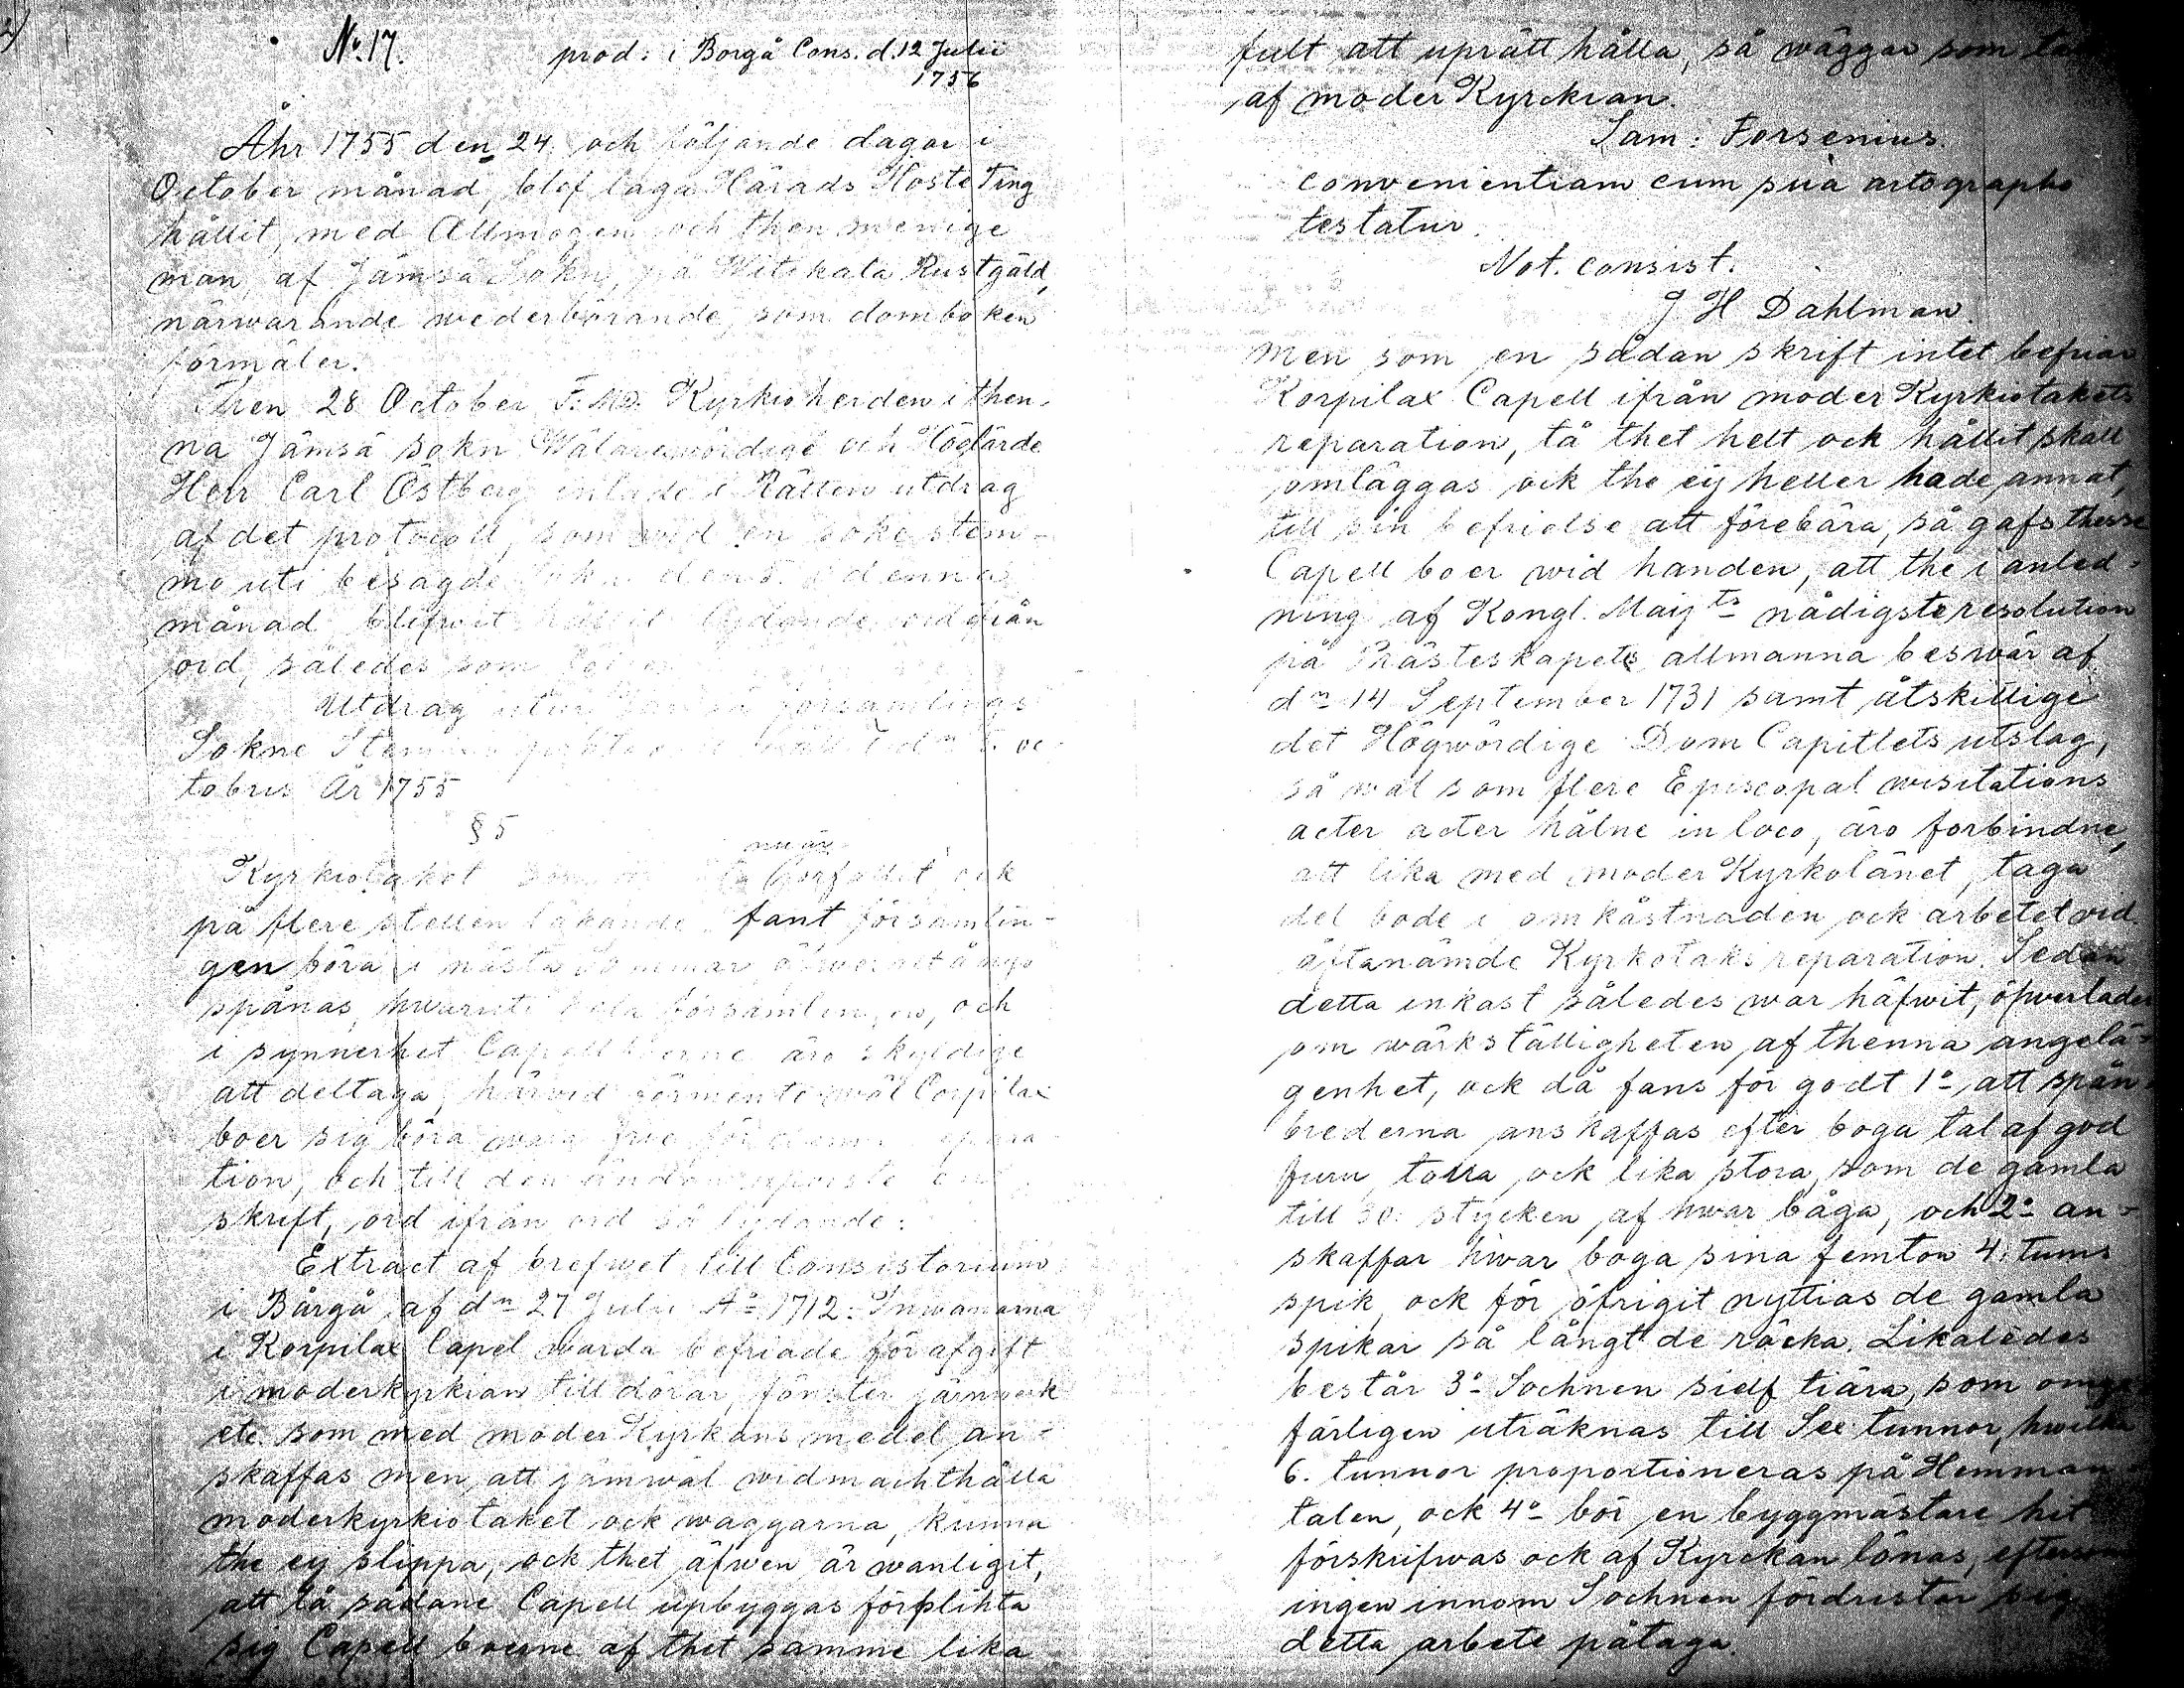 No. 17. prod: i Borgå Cons. d. 12 Julii
1756
Åhr 1755 den 24 och följande dagar i
October månad, blef laga Härads Höste Ting
hållit, med Allmogen och then menige
man, af Jämsä Sokn, på Witikala Rustgäld,
närwarande wederbörande, som domboken
förmäler.
Then 28 October Kyrkioherden i then-
na Jämsä sokn Wälarewördige och Höglärde
Herr Carl Östberg inlade i Rätten utdrag
af det protocoll, som wid en soke stem-
mo uti besagde sokn den 5. i denna
månad blifwit hållit lydande ord ifrån
ord, således som
Utdrag utur församlings
Sokne oc
tobris År 1755
§ 5
nu är
Kyrkiotaket förfallit ock
på flere stellen läkande fant församlin-
gen böra i nästa sommar öfweralt ånyo
spånas, hwaruti hela församlingen, och
i synnerhet Capellboerne äro skyldige
att deltaga, härwid förmente wäl Corpilax
boer sig böra wara frie för denna repara
tion, och till den ändan en
skrift, ord ifrån ord så lydande:
Extract af brefwet till Consistorium
i Bårgå af dn 27 Julii Ao 1712. Inwånarna
i Korpilax Capel warda befriade för afgift
i moderkyrkian till dörar, fönster järnwerk
etc. som med moder Kyrkans medel an-
skaffas men att jämwäl widmachthålla
moderkyrkiotaket ock waggarna, kunna
the ej slippa, ock thet äfwen är wanligit,
att tå sådane Capell upbyggas förplihta
sig Capell boerne af thet samme lika
fult att uprätt hålla, så wäggar som
af moder Kyrckian.
Sam: Forsenius.
convenientiam cum suà artographo
testatur.
Not. consist.
J H Dahlman.
Men som en sådan skrift intet befriar
Korpilax Capell ifrån moder Kyrkiotakets
reparation, tå thet helt ock hållit skall
omläggas ock the ej heller hade annat,
till sin befrielse att förebära, så gafs thesse
Capell boer wid handen, att the i anled-
ning af Kongl. Maijts nådigste resolution
på Prästeskapets allmanna beswär af
dn 14 September 1731 samt åtskillige
det Högwördige Dom Capitlets utslag,
så wäl som flere Episcopal wisitations
acter acter hålne in loco, äro forbindne,
att lika med moder Kyrkolänet, taga
del bode i omkåstnaden ock arbetet wid
äftanämde Kyrkotaks reparation. Sedan
detta inkast således war häfwit, öfwerlades
om wärkställigheten af thenna angelä-
genhet, ock då fans för godt 1o att spån-
brederna anskaffas efter boga tal af god
furu, torra ock lika stora, som de gamla
till 30 stycken af hwar båga, och 2o an-
skaffar hwar boga sina femton 4. tums
spik, ock för öfrigit nyttias de gamla
spikar så långt de räcka. Likaledes
består 3o Sochnen sielf tiära, som onge
färligen uträknas till Sex tunnor, hwilka
6. tunnor proportioneras på Hemman
talen, ock 4o bör en byggmästare hit
förskrifwas ock af Kyrckan lönas, eftersom
ingen innom Sochnen fördristar sig
detta arbete påtaga.